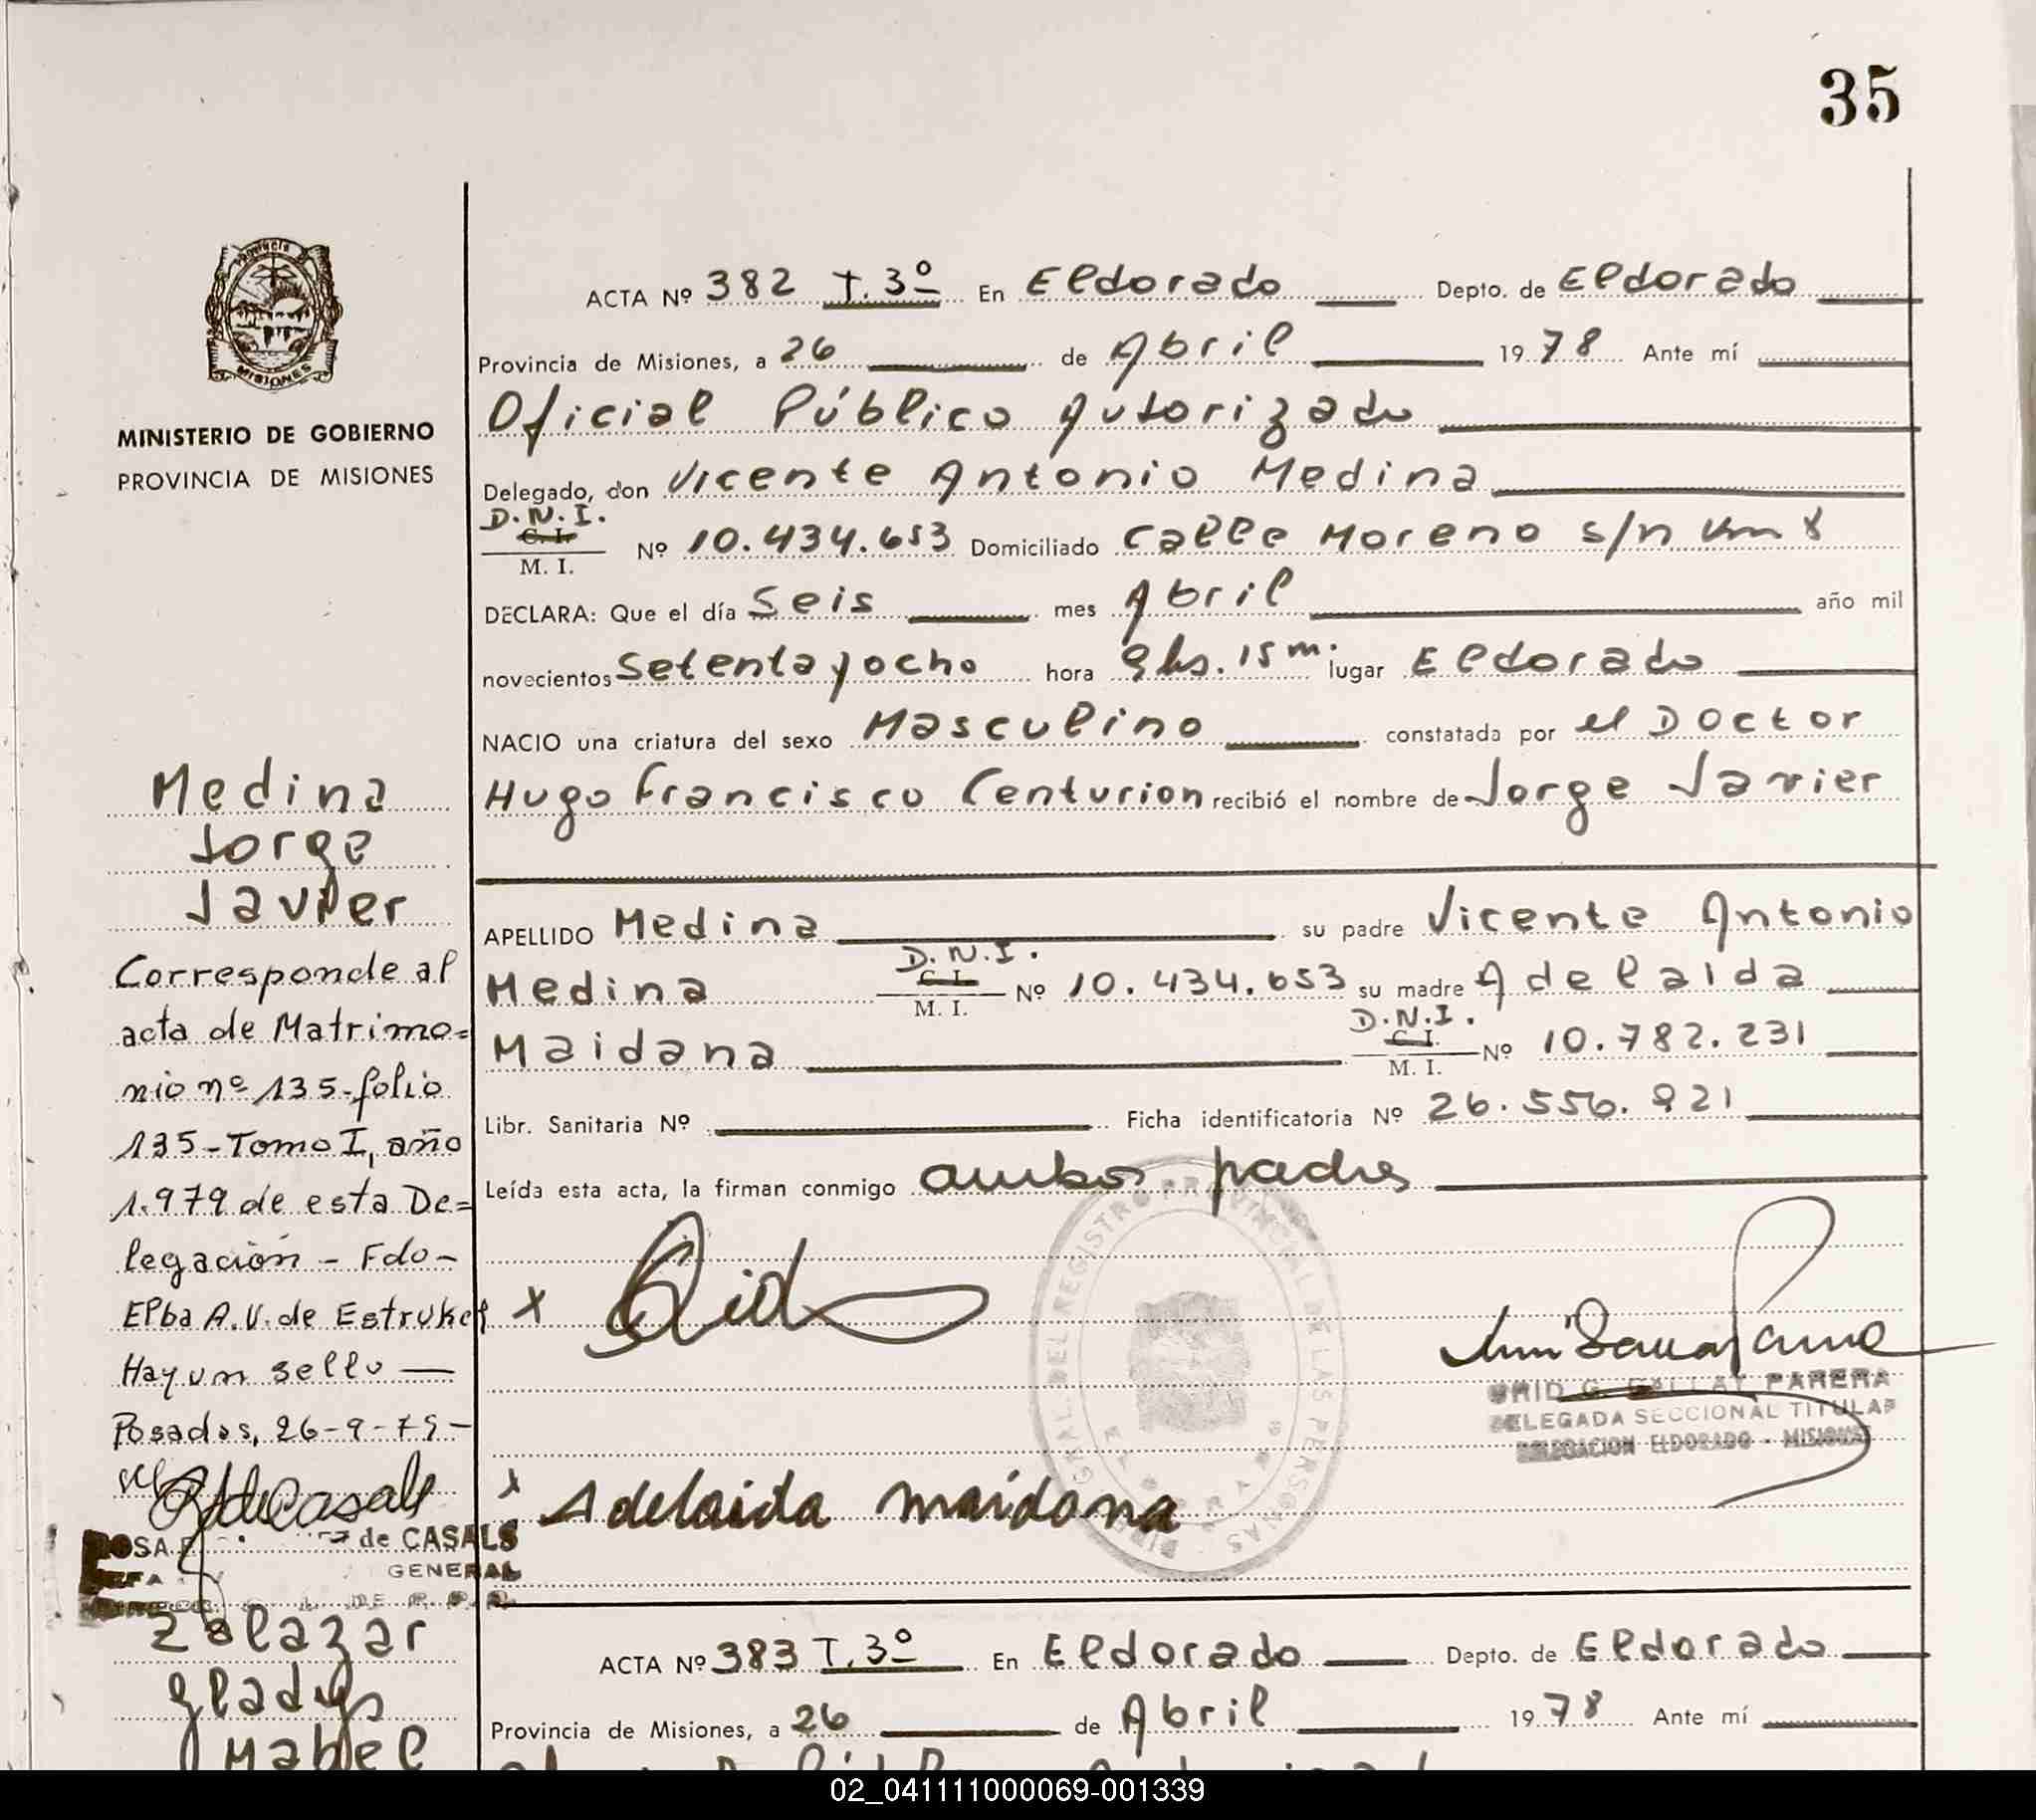 35
Provincia
MISIONES
MINISTERIO DE GOBIERNO
PROVINCIA DE MISIONES
ACTA Nº 382 T. 3º En Eldorado Depto. de Eldorado
Provincia de Misiones, a 26 de Abril 19 78 Ante mí
Oficial Público Autorizado
Delegado, don Vicente Antonio Medina
D.N.I.
C. I.
M. I.
Nº 10.434.653 Domiciliado Calle Moreno s/n Km 8
DECLARA: Que el día Seis mes Abril año mil
novecientos Setenta y ocho hora 9 hs. 15 m. lugar Eldorado
NACIO una criatura del sexo Masculino constatada por el Doctor
Hugo Francisco Centurion recibió el nombre de Jorge Javier
APELLIDO Medina su padre Vicente Antonio
D.N.I.
C. I.
M. I.
Medina Nº 10.434.653 su madre Adelaida
D.N.I.
C. I.
M. I.
Maidana Nº 10.782.231
Libr. Sanitaria Nº Ficha identificatoria Nº 26.556.921
Leída esta acta, la firman conmigo ambos padres
x
x Adelaida maidana
DEL REGISTRO PROVINCIAL DE LAS PERSONAS
G. PARERA
DELEGADA SECCIONAL TITULAR
DELEGACION ELDORADO - MISIONES
Medina
Jorge
Javier
Corresponde al
acta de Matrimo=
nio nº 135-folio
135-Tomo I, año
1.979 de esta De=
legación - Fdo-
Elba A.V. de Estruker
Hay un sello —
Posadas, 26-9-79-
ROSA de CASALS
GENERAL
Zalazar
Gladys
Mabel
ACTA Nº 383 T. 3º En Eldorado Depto. de Eldorado
Provincia de Misiones, a 26 de Abril 19 78 Ante mí
02_041111000069-001339